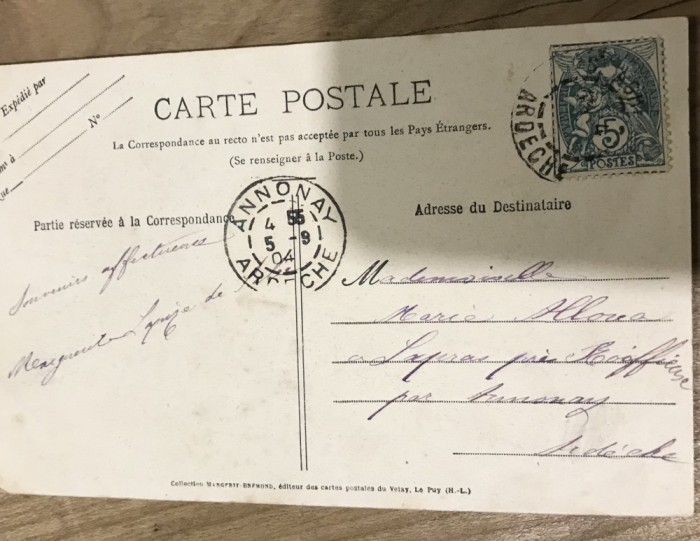 Expédié par
à
Nº
CARTE POSTALE
La Correspondance au recto n'est pas acceptée par tous les Pays Étrangers.
(Se renseigner à la Poste.)
Partie réservée à la Correspondance
Adresse du Destinataire
ANNONAY
4 55
5 -9
04
ARDECHE
ARDECHE
5
POSTES
Souvenirs affectueux
Marguerite de
Mademoiselle
Marie
à près
par Annonay
Ardèche
Collection MARGERIT-BRÉMOND, éditeur des cartes postales du Velay, Le Puy (H.-L.)